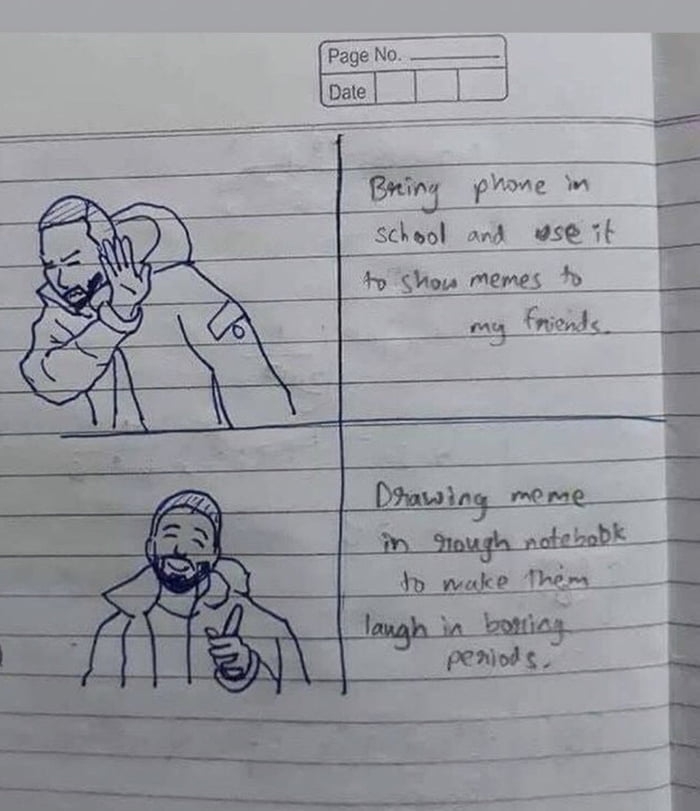 Page No.
Date
Bring phone in
school and use it
to show memes to
my friends.
Drawing meme
in rough notebook
to make them
laugh in boring
periods.